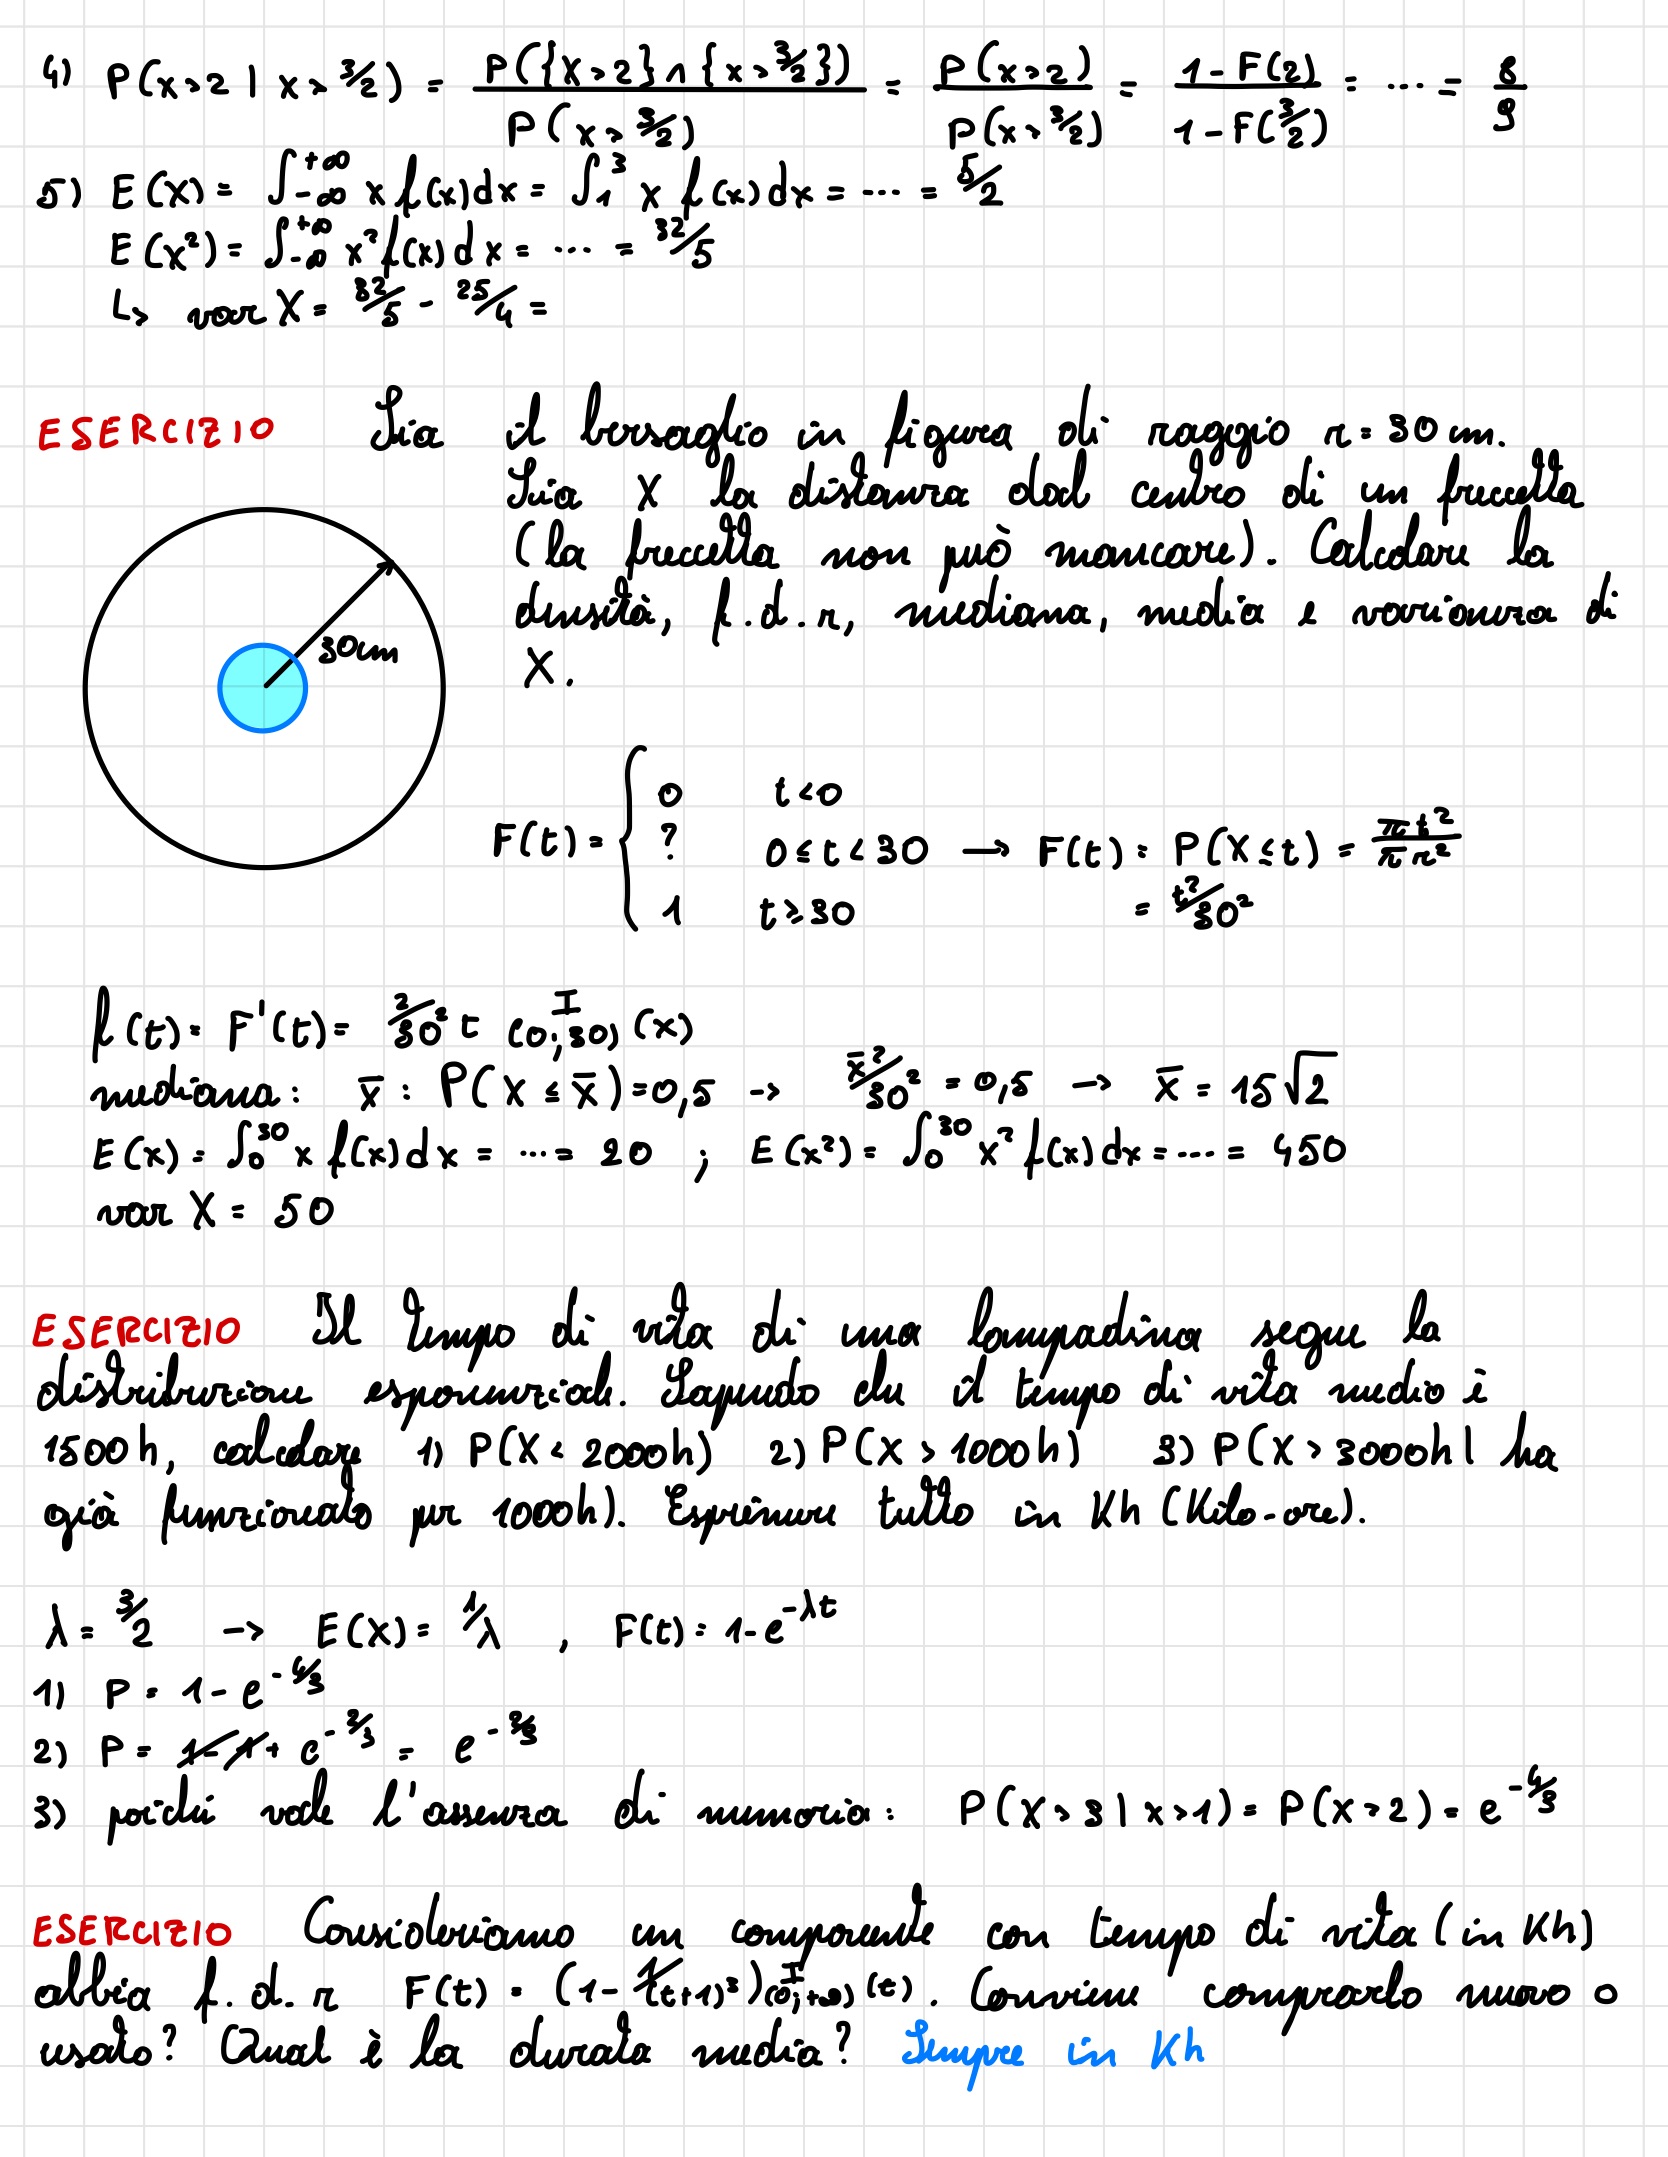 4) P(X>2 | X>3/2) = P({X>2}∩{X>3/2}) / P(X>3/2) = P(X>2) / P(X>3/2) = (1-F(2)) / (1-F(3/2)) = ... = 8/9
5) E(X) = ∫_{-∞}^{+∞} x f(x)dx = ∫_1^3 x f(x)dx = ... = 5/2
E(X²) = ∫_{-∞}^{+∞} x² f(x)dx = ... = 32/5
↳ var X = 32/5 - 25/4 =
ESERCIZIO Sia il bersaglio in figura di raggio r=30cm.
Sia X la distanza dal centro di un freccetta
(la freccetta non può mancare). Calcolare la
densità, f.d.r, mediana, media e varianza di
X.
30cm
F(t) = { 0 t<0
? 0≤t<30 → F(t) = P(X≤t) = πt²/πr²
1 t≥30 = t²/30²
f(t) = F'(t) = 2/30² t I(0;30)(x)
mediana: x̄ : P(X≤x̄)=0,5 → x̄²/30² = 0,5 → x̄ = 15√2
E(X) = ∫_0^30 x f(x)dx = ... = 20 ; E(X²) = ∫_0^30 x² f(x)dx = ... = 450
var X = 50
ESERCIZIO Il tempo di vita di una lampadina segue la
distribuzione esponenziale. Sapendo che il tempo di vita medio è
1500h, calcolare 1) P(X<2000h) 2) P(X>1000h) 3) P(X>3000h| ha
già funzionato per 1000h). Esprimere tutto in Kh (Kilo-ore).
λ = 3/2 → E(X) = 1/λ , F(t) = 1-e^{-λt}
1) P = 1-e^{-4/3}
2) P = 1-1+e^{-2/3} = e^{-2/3}
3) poiché vale l'assenza di memoria: P(X>3|X>1) = P(X>2) = e^{-4/3}
ESERCIZIO Consideriamo un componente con tempo di vita (in Kh)
abbia f.d.r F(t) = (1-1/(t+1)³) I(0;+∞)(t). Conviene comprarlo nuovo o
usato? Qual è la durata media? Sempre in Kh